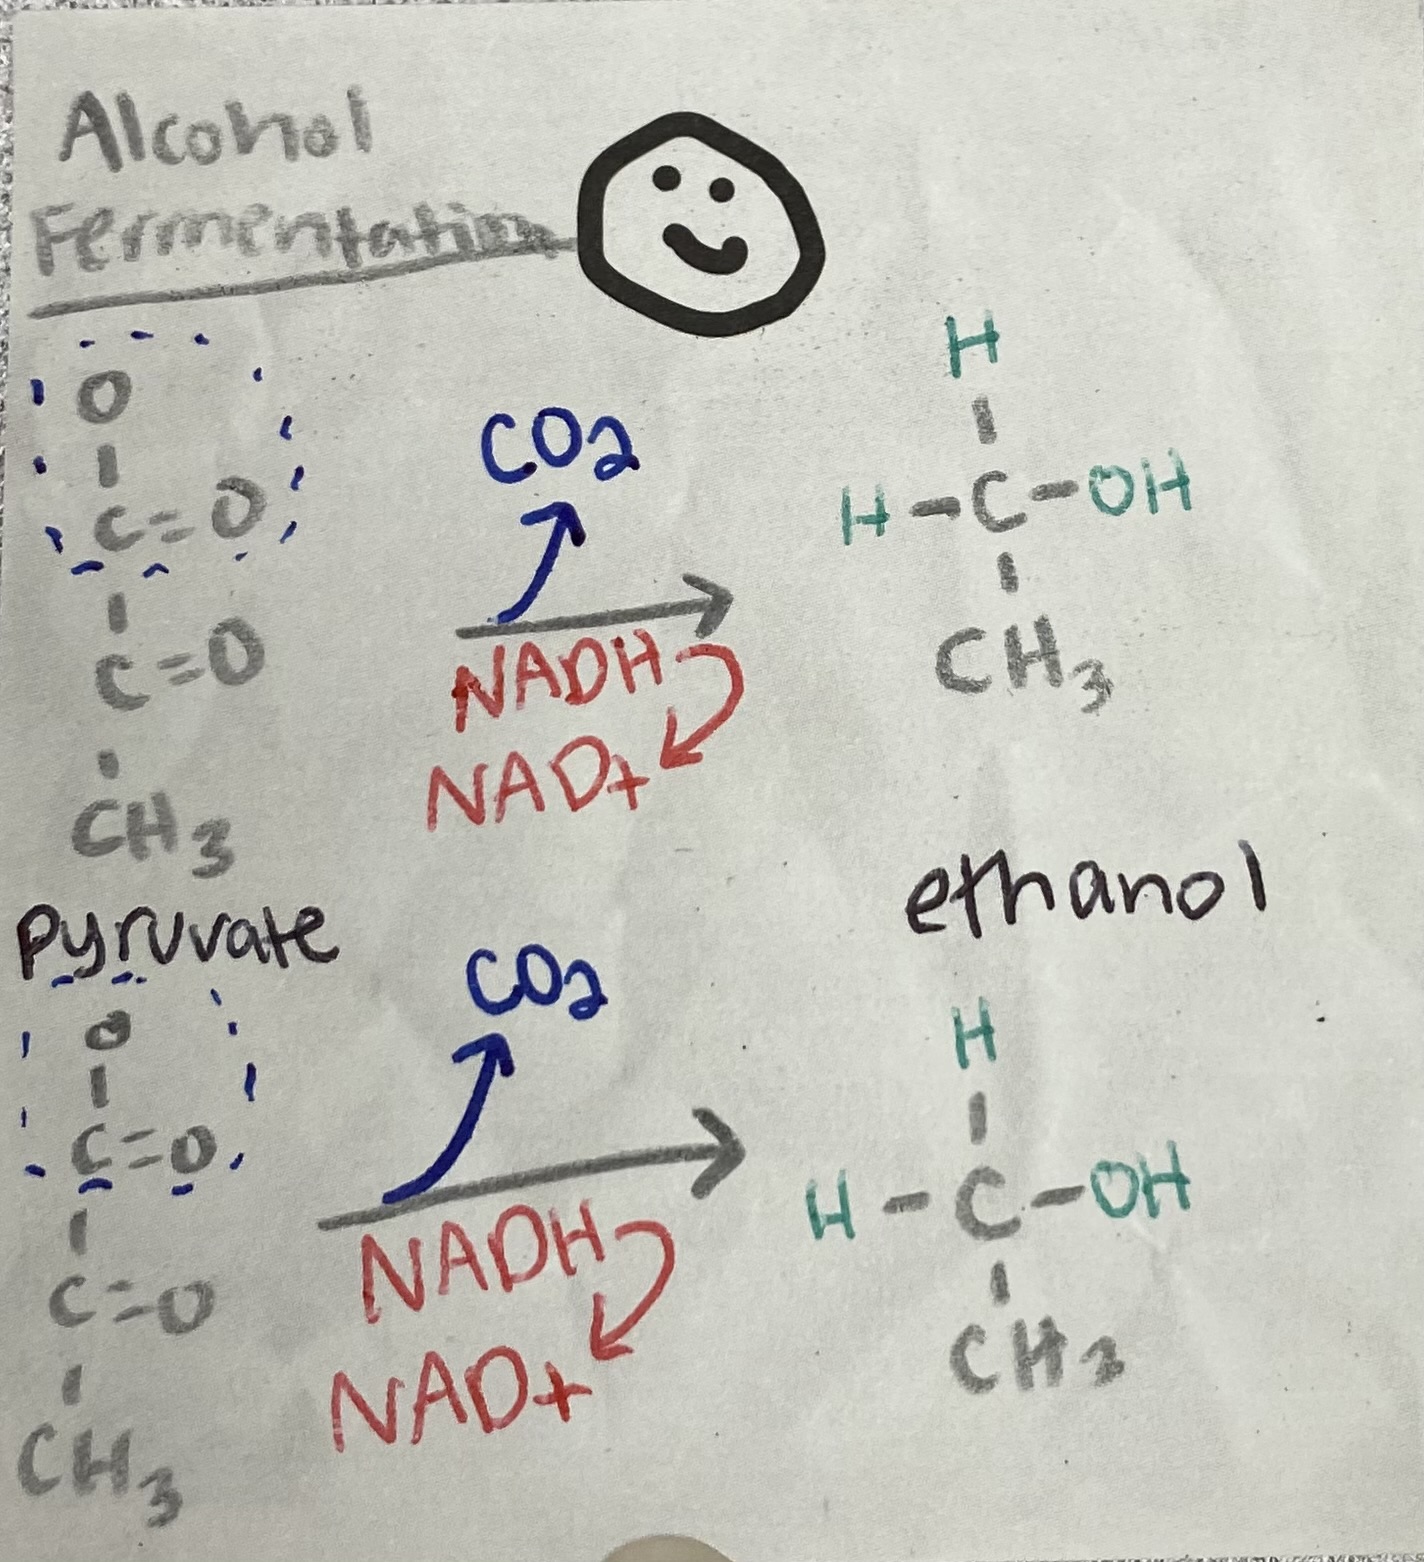 Alcohol
Fermentation
O
C=O
C=O
CH3
pyruvate
CO2
NADH
NAD+
H
H-C-OH
CH3
ethanol
O
C=O
C=O
CH3
CO2
NADH
NAD+
H
H-C-OH
CH3